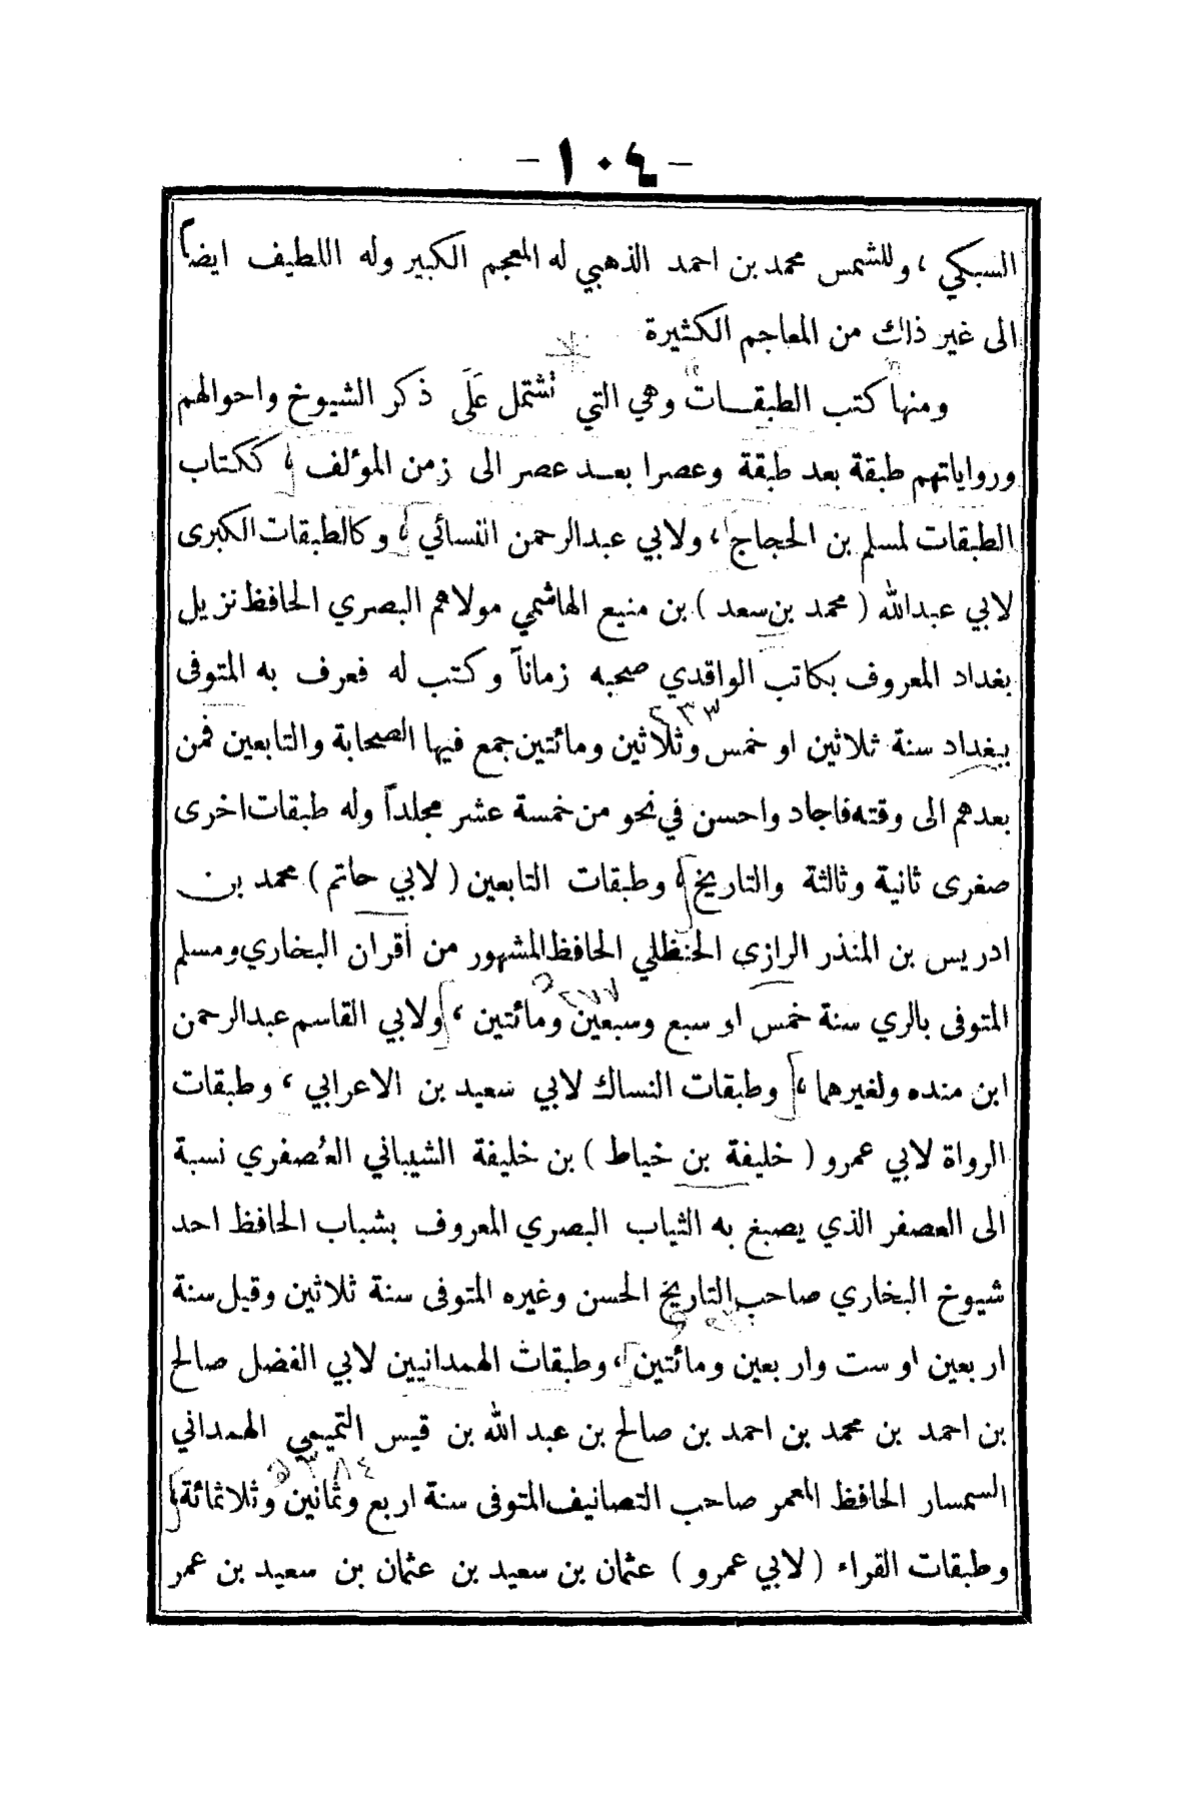 - ١٠٤ -
السبكي ، وللشمس محمد بن احمد الذهبي له المعجم الكبير وله اللطيف ايضاً
الى غير ذلك من المعاجم الكثيرة
ومنها كتب الطبقـات وهي التي تشتمل عَلَى ذكر الشيوخ واحوالهم
ورواياتهم طبقة بعد طبقة وعصرا بعـد عصر الى زمن المؤلف ، ككتاب
الطبقات لمسلم بن الحجاج ، ولابي عبدالرحمن النسائي ، وكالطبقات الكبرى
لابي عبدالله ( محمد بن سعد ) بن منيع الهاشمي مولاهم البصري الحافظ نزيل
بغداد المعروف بكاتب الواقدي صحبه زماناً وكتب له فعرف به المتوفى
٢٣٣
ببغداد سنة ثلاثين او خمس وثلاثين ومائتين جمع فيها الصحابة والتابعين فمن
بعدهم الى وقته فاجاد واحسن في نحو من خمسة عشر مجلداً وله طبقات اخرى
صغرى ثانية وثالثة والتاريخ ، وطبقات التابعين ( لابي حاتم ) محمد بن
ادريس بن المنذر الرازي الحنظلي الحافظ المشهور من أقران البخاري ومسلم
٢٧٧
المتوفى بالري سنة خمس او سبع وسبعين ومائتين ، ولابي القاسم عبدالرحمن
ابن منده ولغيرهما ، وطبقات النساك لابي سعيد بن الاعرابي ، وطبقات
الرواة لابي عمرو ( خليفة بن خياط ) بن خليفة الشيباني العُصفري نسبة
الى العصفر الذي يصبغ به الثياب البصري المعروف بشباب الحافظ احد
شيوخ البخاري صاحب التاريخ الحسن وغيره المتوفى سنة ثلاثين وقبل سنة
اربعين او ست واربعين ومائتين ، وطبقات الهمدانيين لابي الفضل صالح
بن احمد بن محمد بن احمد بن صالح بن عبد الله بن قيس التميمي الهمداني
٣٨٤
السمسار الحافظ المعمر صاحب التصانيف المتوفى سنة اربع وثمانين وثلاثمائة ،
وطبقات القراء ( لابي عمرو ) عثمان بن سعيد بن عثمان بن سعيد بن عمر